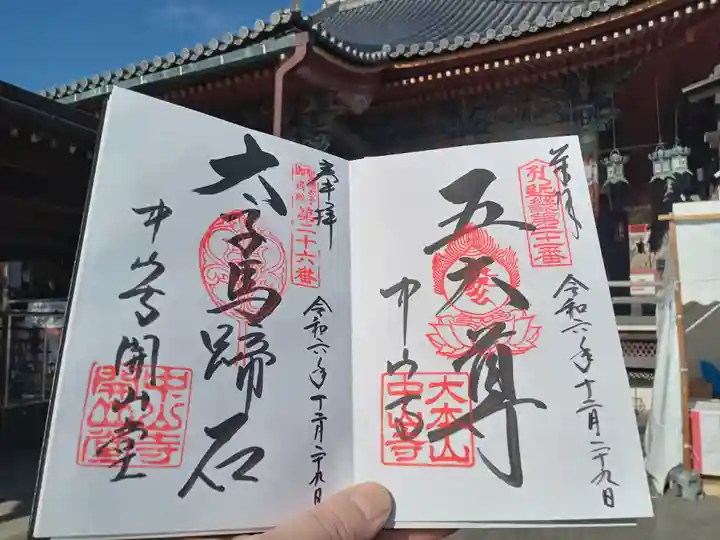 奉拝
札所第二十番
五大尊
中山寺
大本山
中山寺
令和六年十二月二十九日
奉拝
第二十六番
太子馬蹄石
中山寺開山堂
中山寺
開山堂
令和六年十二月二十九日